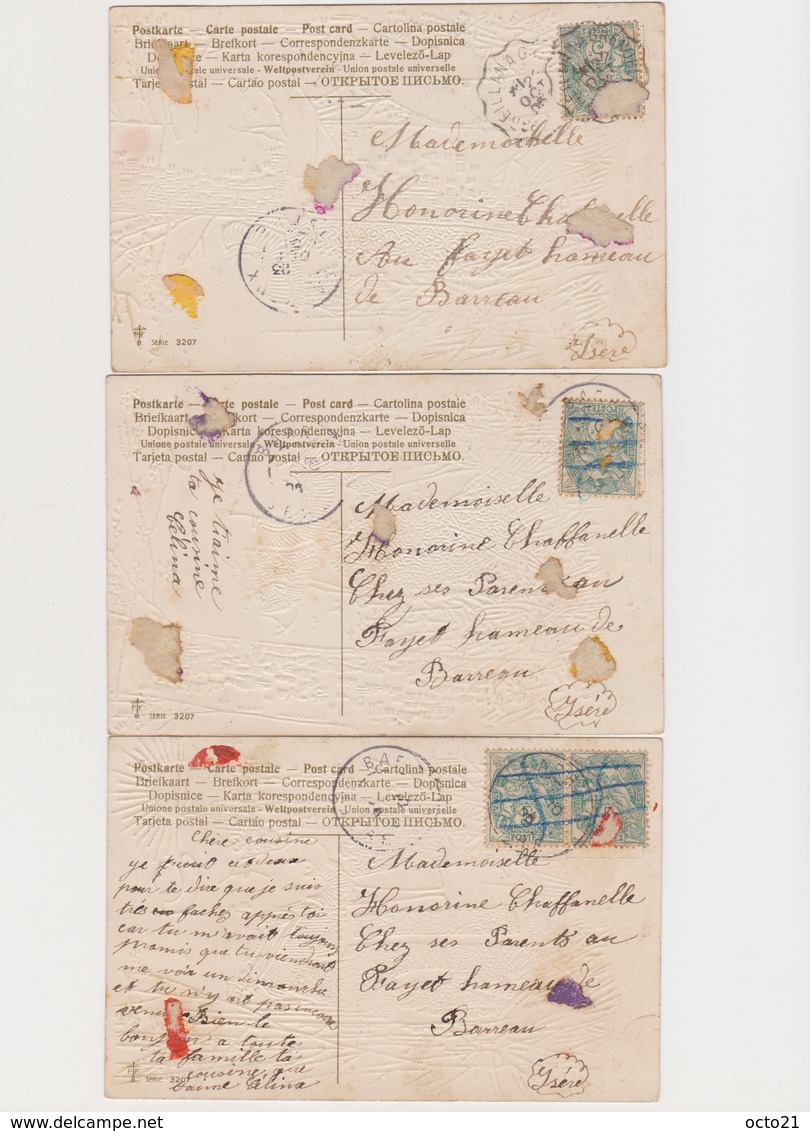 Postkarte — Carte postale — Post card — Cartolina postale
Briefkaart — Brefkort — Correspondenzkarte — Dopisnica
Karta korespondencyjna — Levelező-Lap
Union postale universelle - Weltpostverein - Union postale universelle
Tarjeta postal — Cartão postal — ОТКРЫТОЕ ПИСЬМО.
12
OC
Mademoiselle
Honorine
Au Fayet hameau
de Barreau
Isère
SERIE 3207
Postkarte — Carte postale — Post card — Cartolina postale
Briefkaart — Brefkort — Correspondenzkarte — Dopisnica
Dopisnice — Karta korespondencyjna — Levelező-Lap
Unione postale universale - Weltpostverein - Union postale universelle
Tarjeta postal — Cartão postal — ОТКРЫТОЕ ПИСЬМО.
POSTES
je t'aime
ta cousine
Célina
Mademoiselle
Honorine Chaffanelle
Chez ses Parents au
Fayet hameau de
Barreau
Isére
SERIE 3207
Postkarte — Carte postale — Post card — Cartolina postale
Briefkaart — Brefkort — Correspondenzkarte — Dopisnica
Dopisnice — Karta korespondencyjna — Levelező-Lap
Unione postale universale - Weltpostverein - Union postale universelle
Tarjeta postal — Cartão postal — ОТКРЫТОЕ ПИСЬМО.
BAR
Chère cousine
pour te dire que je suis
très fachez apprés toi
car tu m'avait toujours
promis que tu viendrait
me voir un dimanche
et tu n'y ait pas encore
venu Bien le
bonjour a toute
ta famille ta
cousine que
t'aime Célina
Mademoiselle
Honorine Chaffanelle
Chez ses Parents au
Fayet hameau de
Barreau
Isére
SERIE 3207
octo21